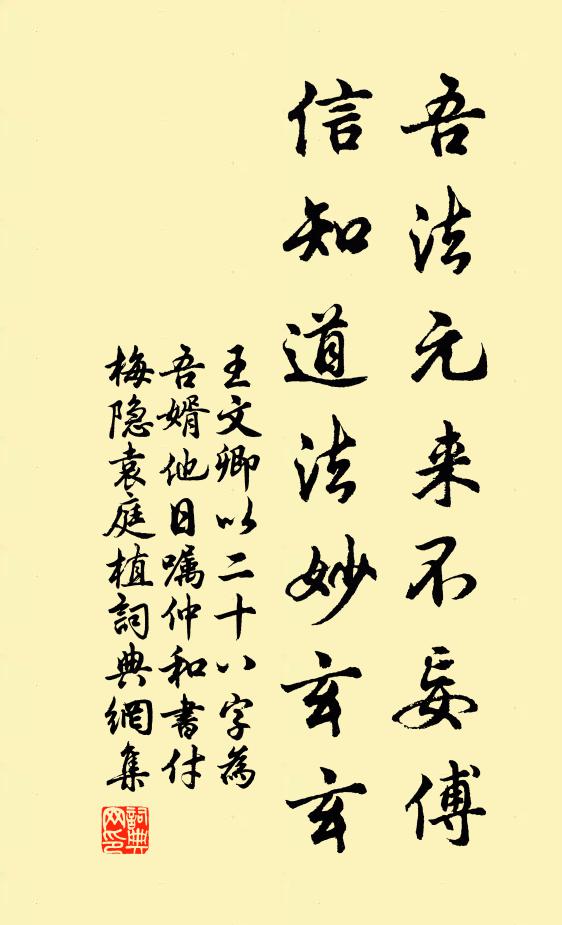 吾法元来不妄傅
信知道法妙玄玄
王文卿以二十八字為
吾婿他日嘱仲和書付
梅隐袁庭植詞典網集
詞典网印